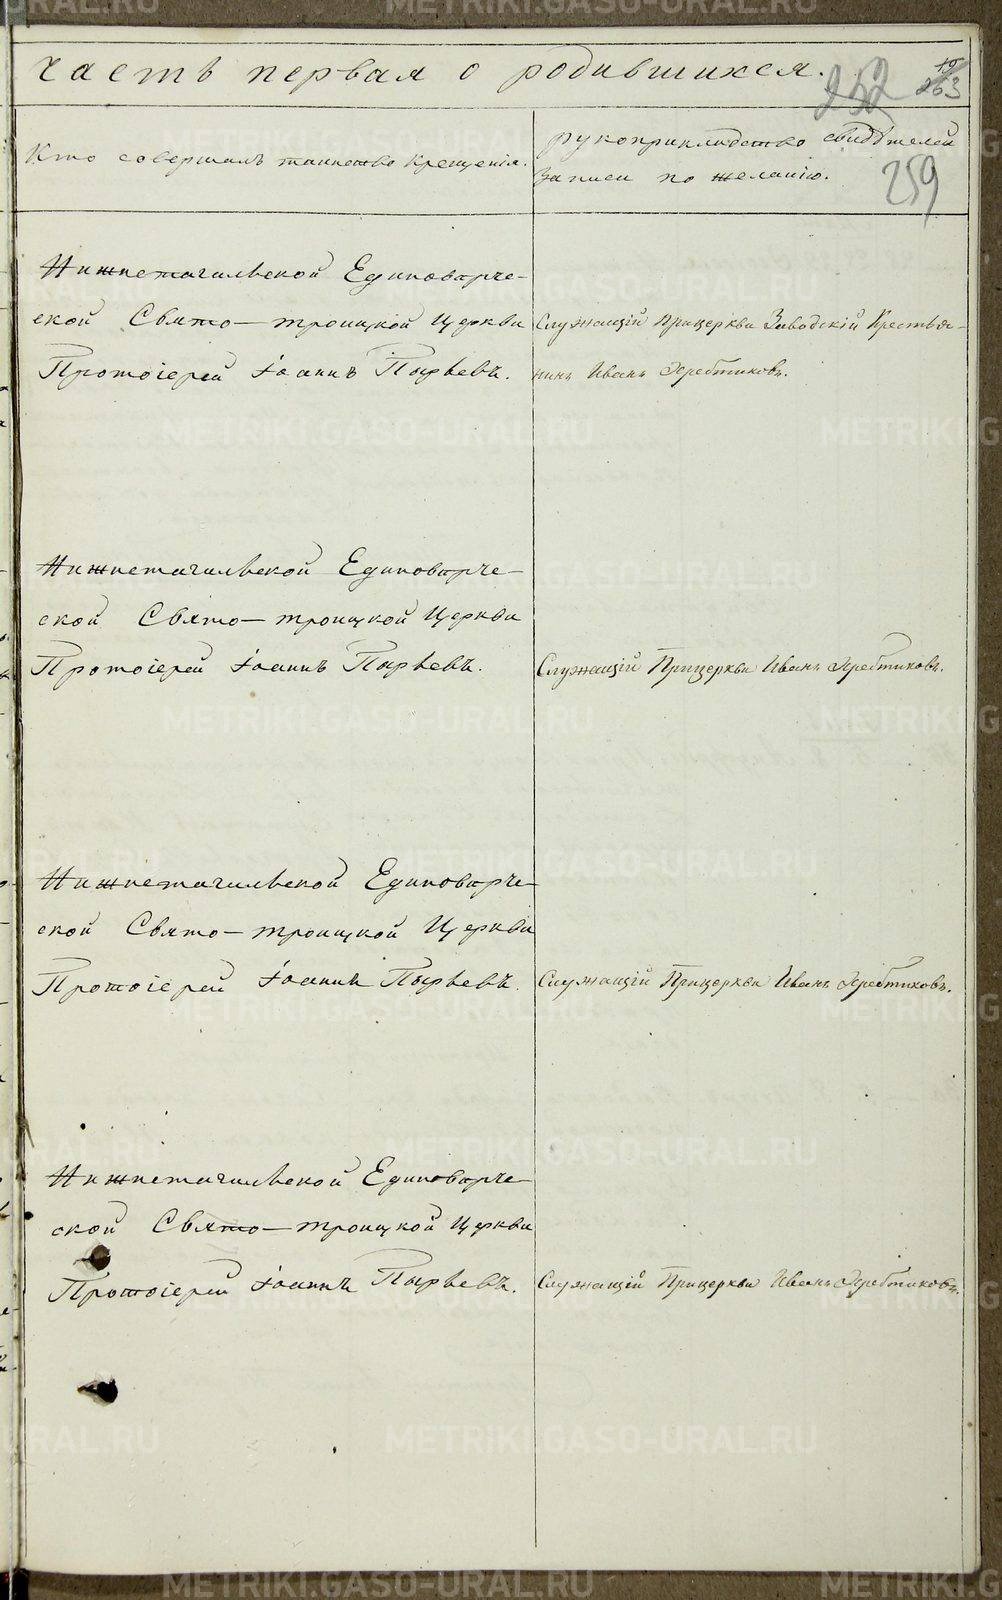 часть первая о родившихся.
252
19
263
Кто совершалъ таинство крещенія.
рукоприкладство свидѣтелей
записи по желанію.
259
Нижнетагильской Единоверче-
ской Свято-троицкой Церкви
Протоіерей Іоаннъ Пырьевъ.
Служащій Прицеркви Заводскій Крестья-
нинъ Иванъ Жребтиковъ.
Нижнетагильской Единоверче-
ской Свято-троицкой Церкви
Протоіерей Іоаннъ Пырьевъ.
Служащій Прицеркви Иванъ Жребтиковъ.
Нижнетагильской Единоверче-
ской Свято-троицкой Церкви
Протоіерей Іоаннъ Пырьевъ.
Служащій Прицеркви Иванъ Жребтиковъ.
Нижнетагильской Единоверче-
ской Свято-троицкой Церкви
Протоіерей Іоаннъ Пырьевъ.
Служащій Прицеркви Иванъ Жребтиковъ.
METRIKI.GASO-URAL.RU